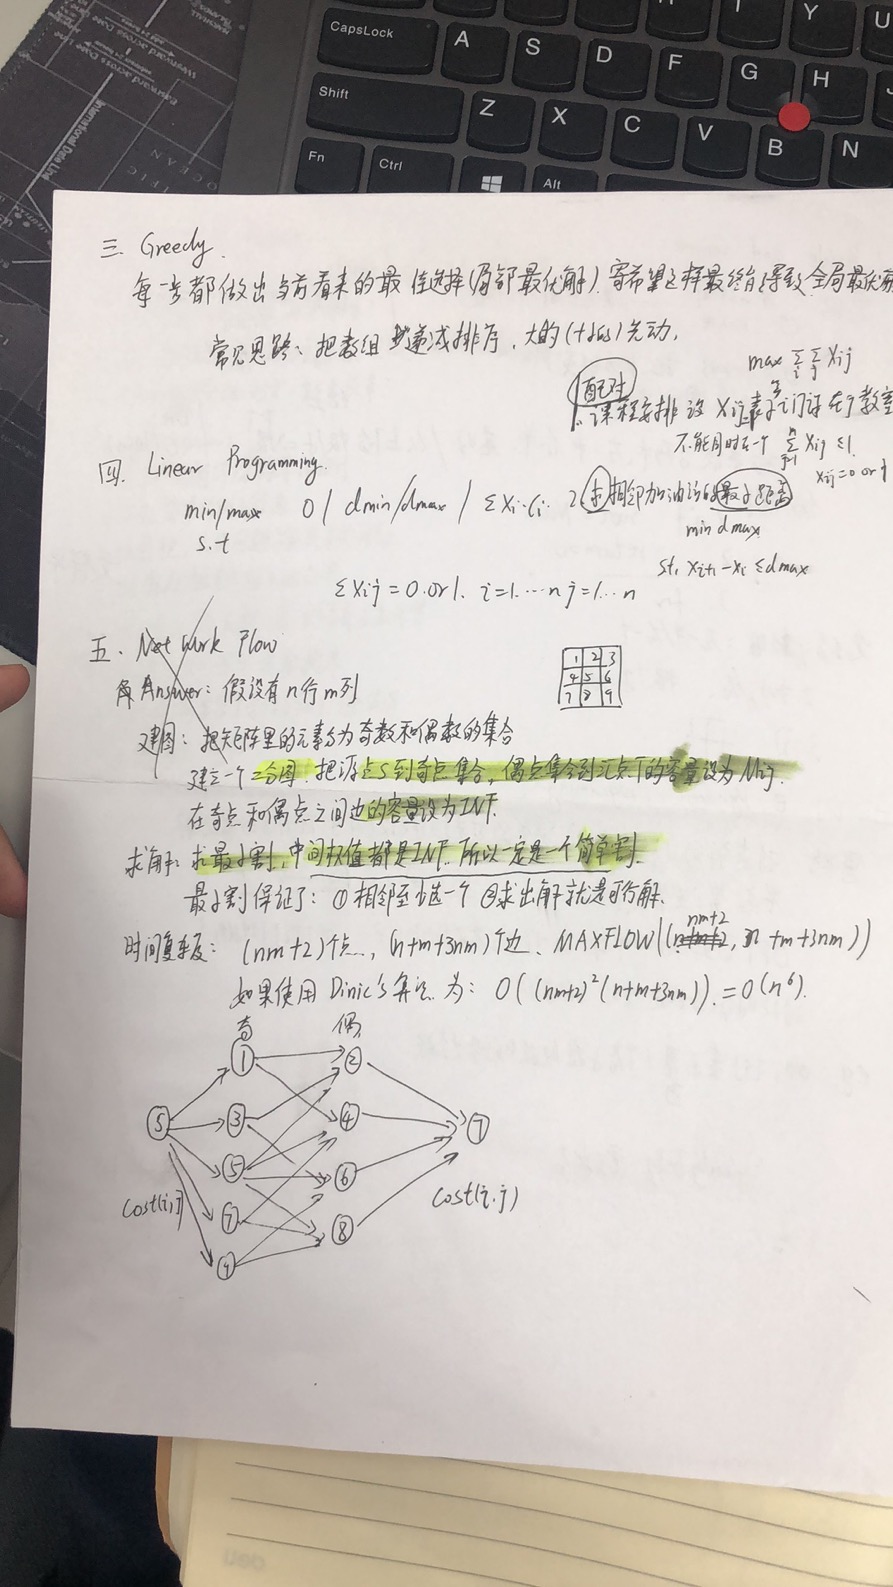 CapsLock A S D F G H
I Y U
Shift Z X C V B N
Fn Ctrl Alt
International Date Line
OCEAN
三. Greedy.
每一步都做出当前看来的最佳选择(局部最优解). 寄希望这样最终能导致全局最优解
常见思路: 把数组 递减排序, 大的 先动.
max Σi Σj Xij
配对
1. 课程安排 设 Xij表示i门课在j教室
不能同时在一个 Σ Xij ≤1.
Xij=0 or 1
四. Linear Programming.
min/max 0/ dmin/dmax / ΣXi·Ci 2 求相邻加油站的最小距离
s.t
min dmax
st. Xi+1-Xi ≤dmax
ΣXij=0.or 1. i=1...n j=1...n
五. Network Flow
1 2 3
4 5 6
7 8 9
Answer: 假设有n行m列
建图: 把矩阵里的元素分为奇数和偶数的集合
建立一个二分图. 把源点S到奇点集合, 偶点集合到汇点T的容量设为Mij.
在奇点和偶点之间边的容量设为INF.
求解: 求最小割, 中间权值都是INF. 所以一定是一个简单割.
最小割保证了: ①相邻至少选一个 ②求出解就是可行解.
nm+2
时间复杂度: (nm+2)个点, (n+m+3nm)个边. MAXFLOW((, n+m+3nm))
如果使用Dinic's算法 为: O((nm+2)²(n+m+3nm)).=O(n⁶).
奇 偶
1 2
S 3 4 T
5 6
7 8
9
Cost(i,j) Cost(i,j)
deli